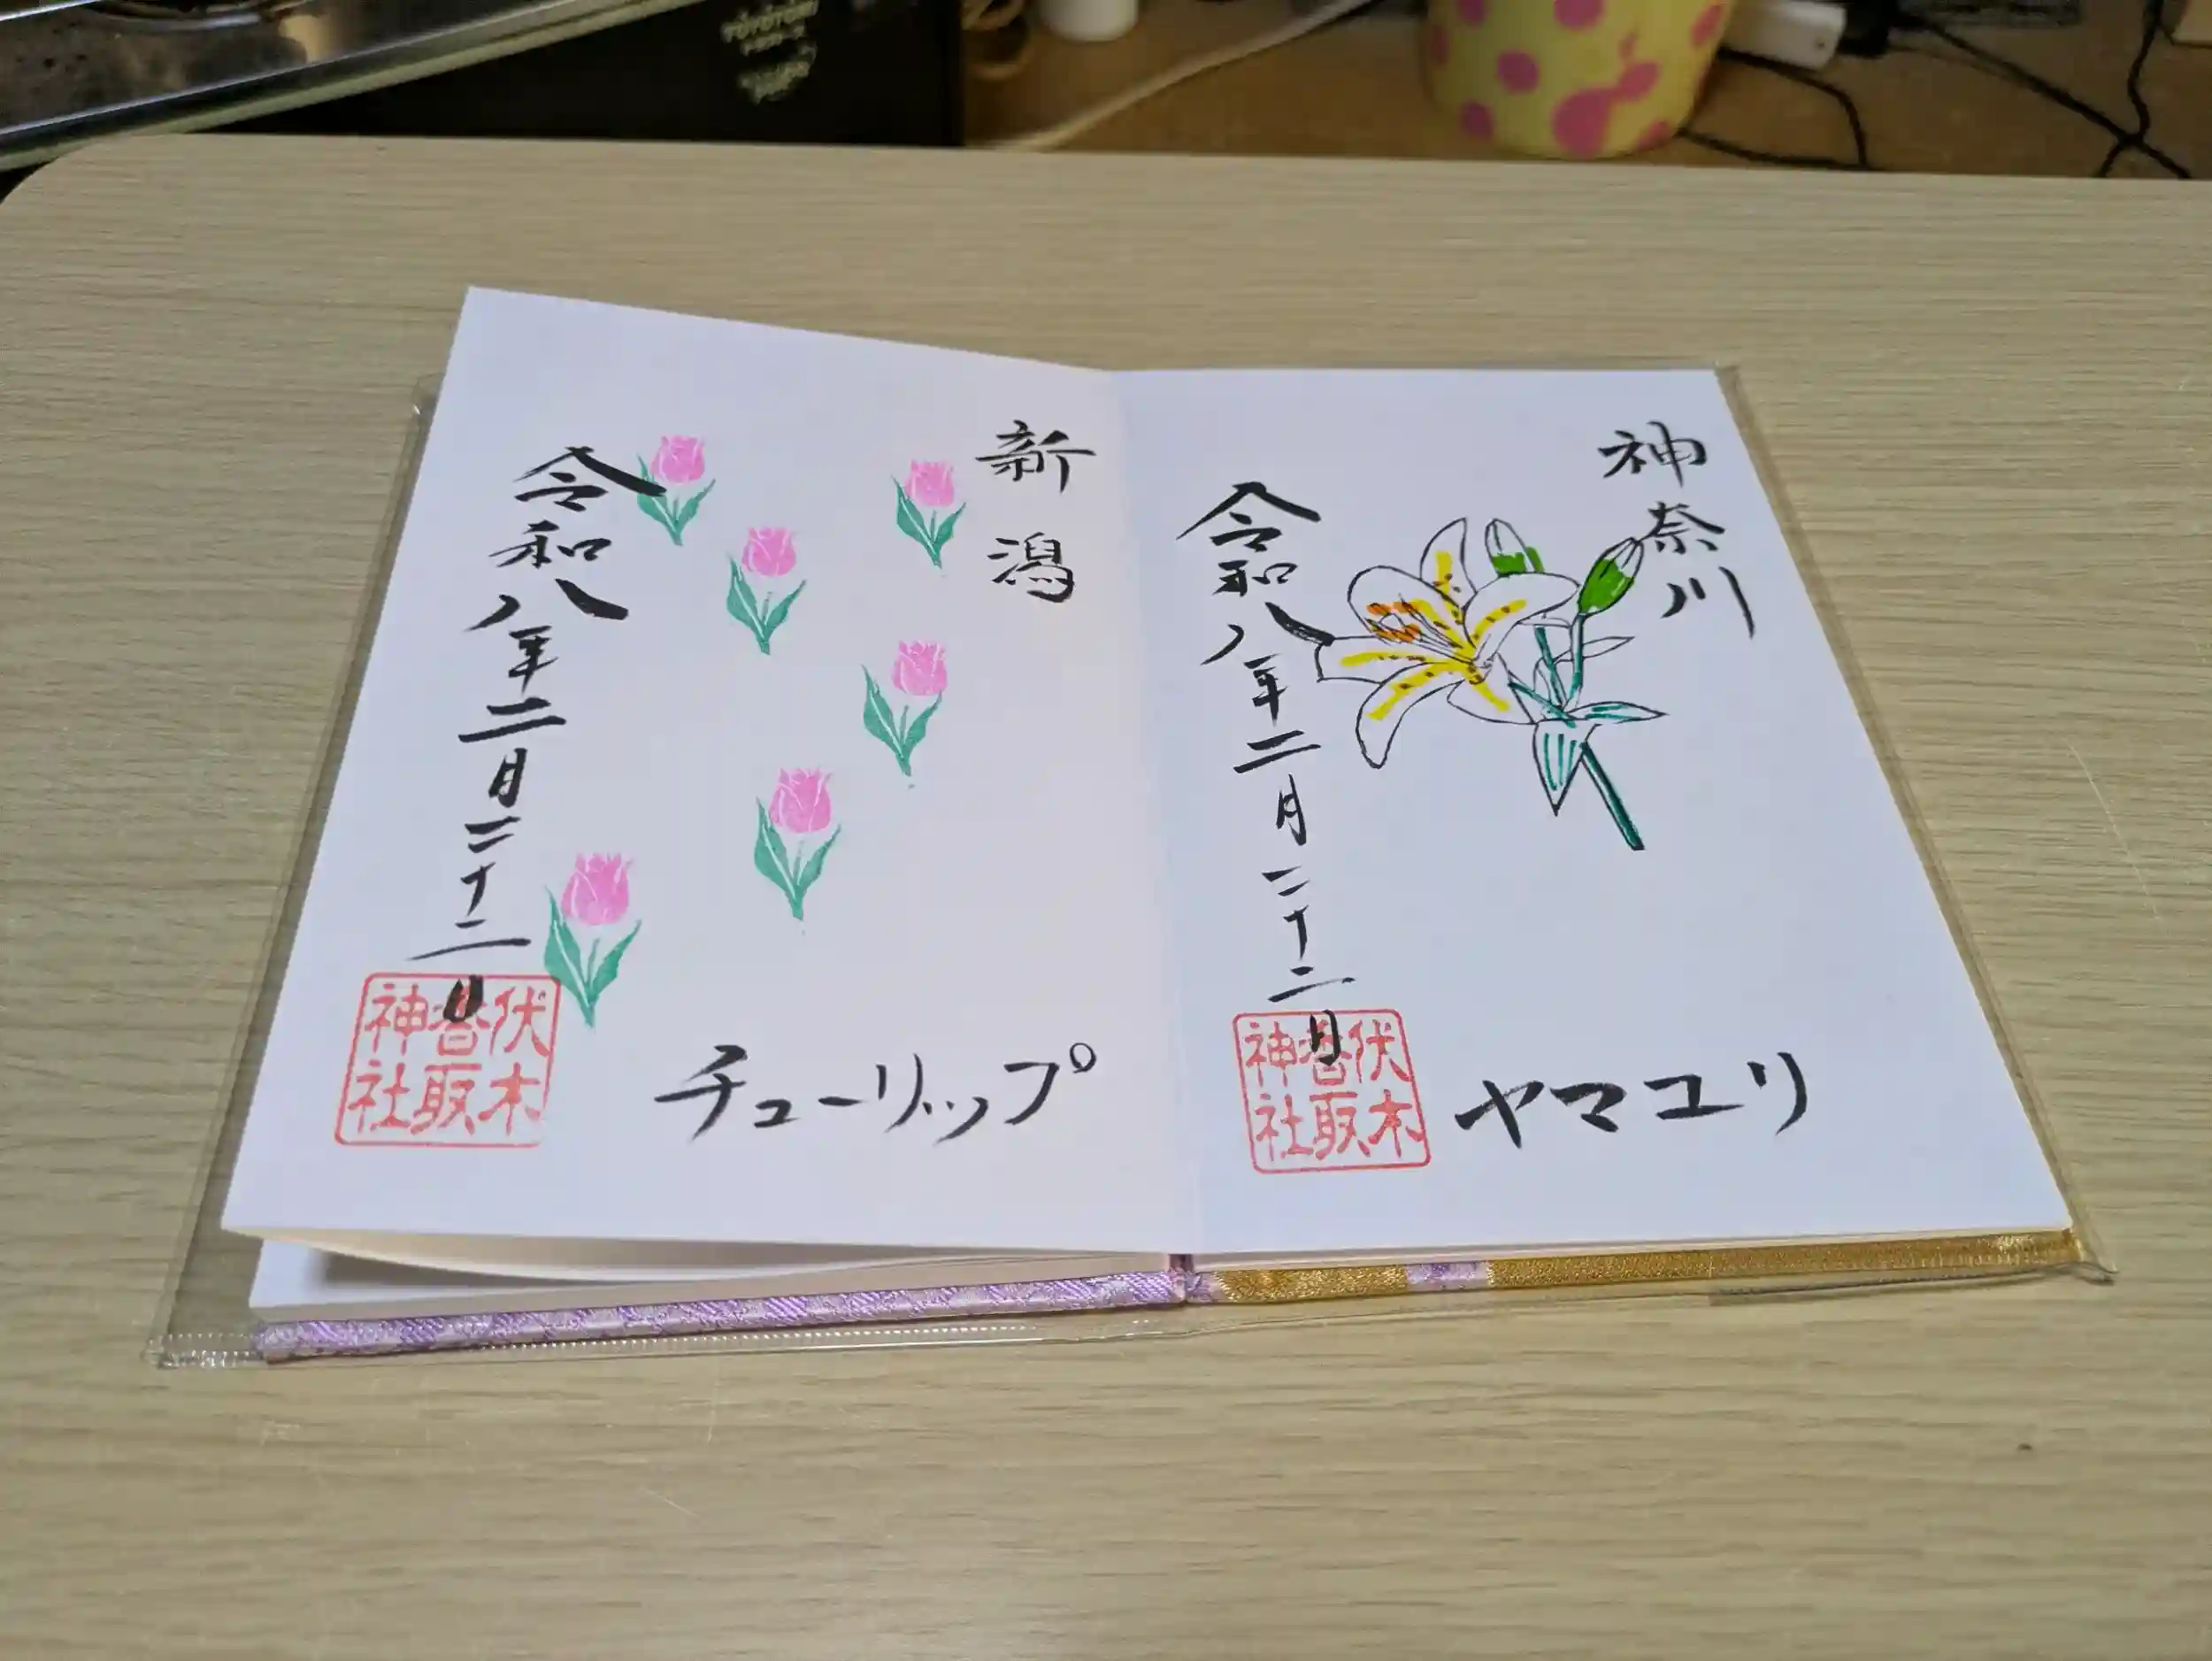 TOYOTOMI
神奈川
令和八年二月二十二日
ヤマユリ
伏木
香取
神社
新潟
令和八年二月二十二日
チューリップ
伏木
香取
神社